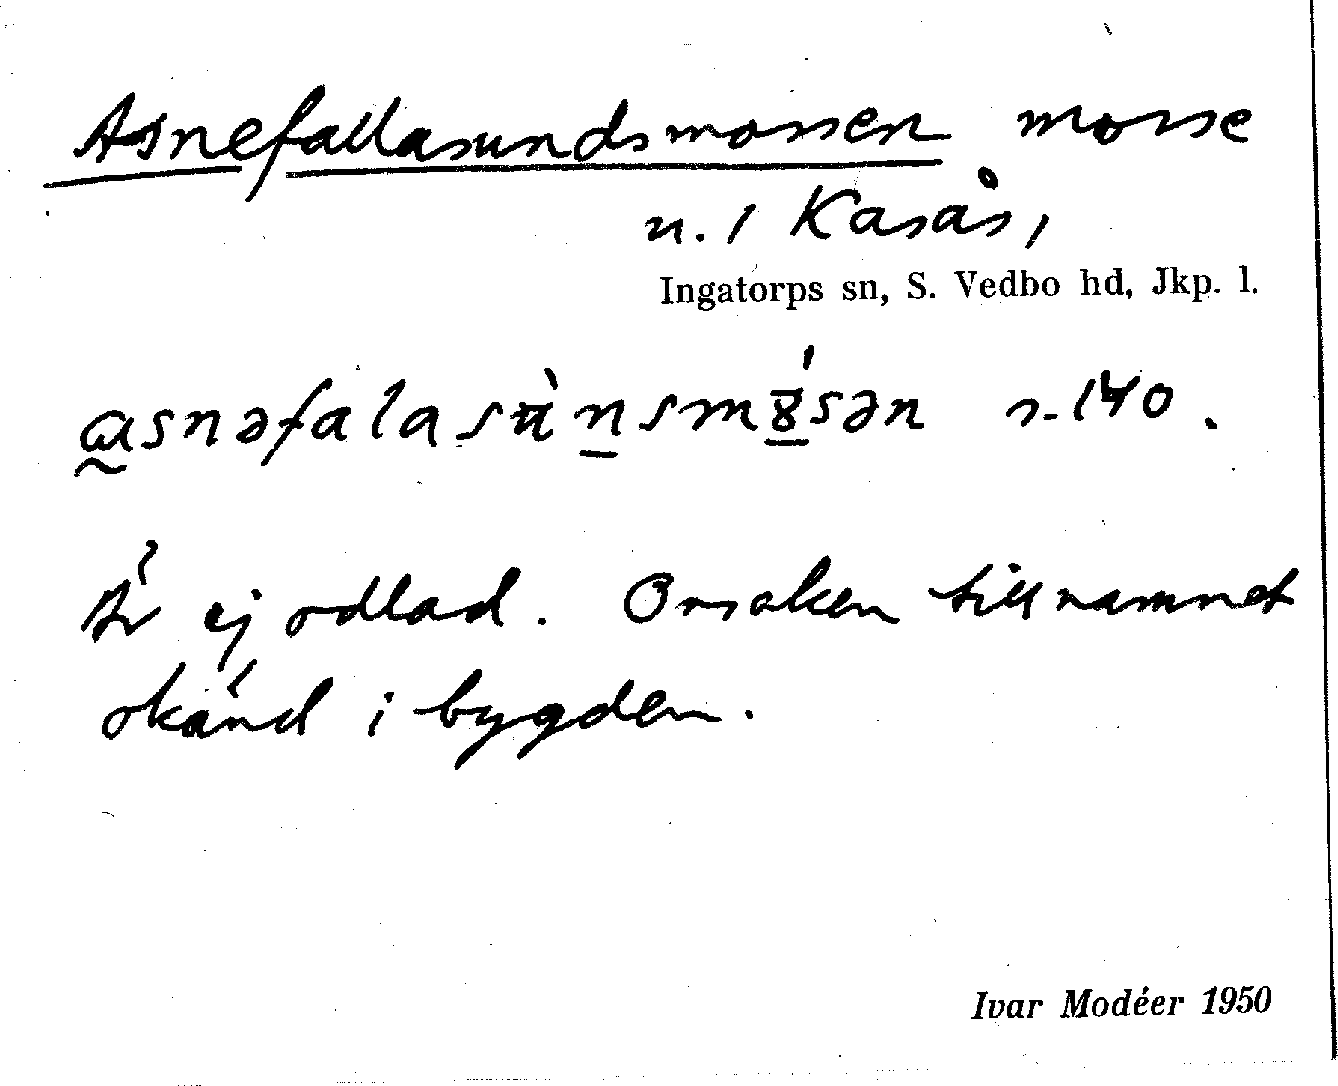 Asnefallasundsmossen mosse
n. 1 Kasås,
Ingatorps sn, S. Vedbo hd, Jkp. l.
ɑsnəfalasùnsm8́sən s. 140.
Är ej odlad. Orsaken till namnet
okänd i bygden.
Ivar Modéer 1950